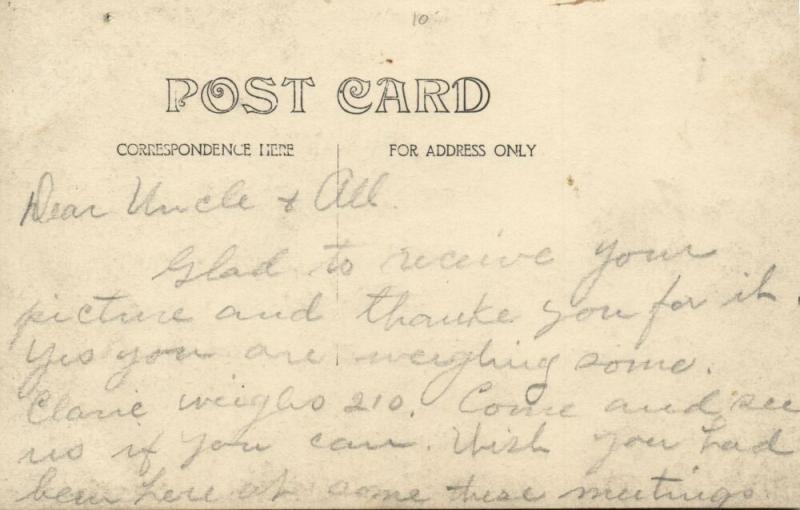 10
POST CARD
CORRESPONDENCE HERE
FOR ADDRESS ONLY
Dear Uncle & All.
Glad to receive your
picture and thanke you for it.
Yes you are weighing some.
weighs 210. Come and see
us if you can. Wish you had
been here at some these meetings.